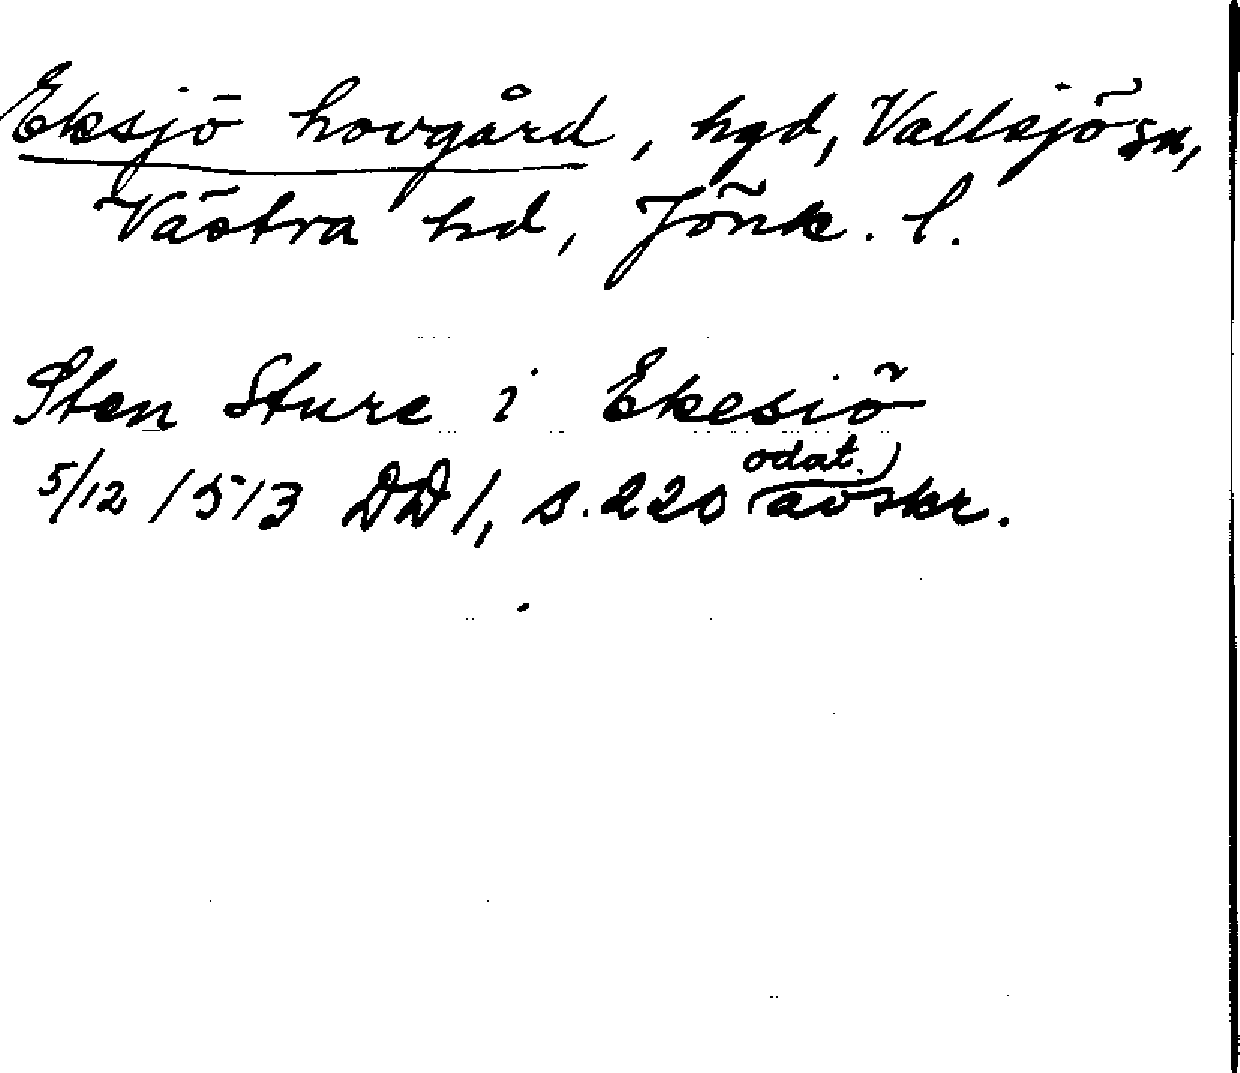 Eksjö hovgård, hgd, Vallsjö sn,
Västra hd, Jönk. l.
Sten Sture i Ekesiö
5/12 1513 DD 1, s. 220 (odat. avskr.